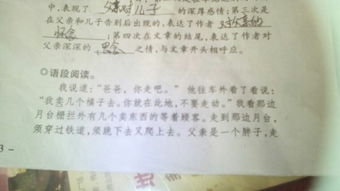 中,表现了 父亲对儿子 的深厚感情;第三次是
在父亲和儿子告别后出现的,表达了作者 对父亲的
怀念 ;第四次在文章的结尾,表达了作者对
父亲深深的 思念 之情,与文章开头相呼应。
◎语段阅读。
我说道:“爸爸,你走吧。”他往车外看了看说:
“我卖几个橘子去。你就在此地,不要走动。”我看那边
月台栅拦外有几个卖东西的等着顾客。走到那边月台,
须穿过铁道,须跳下去又爬上去。父亲是一个胖子,走
3 -